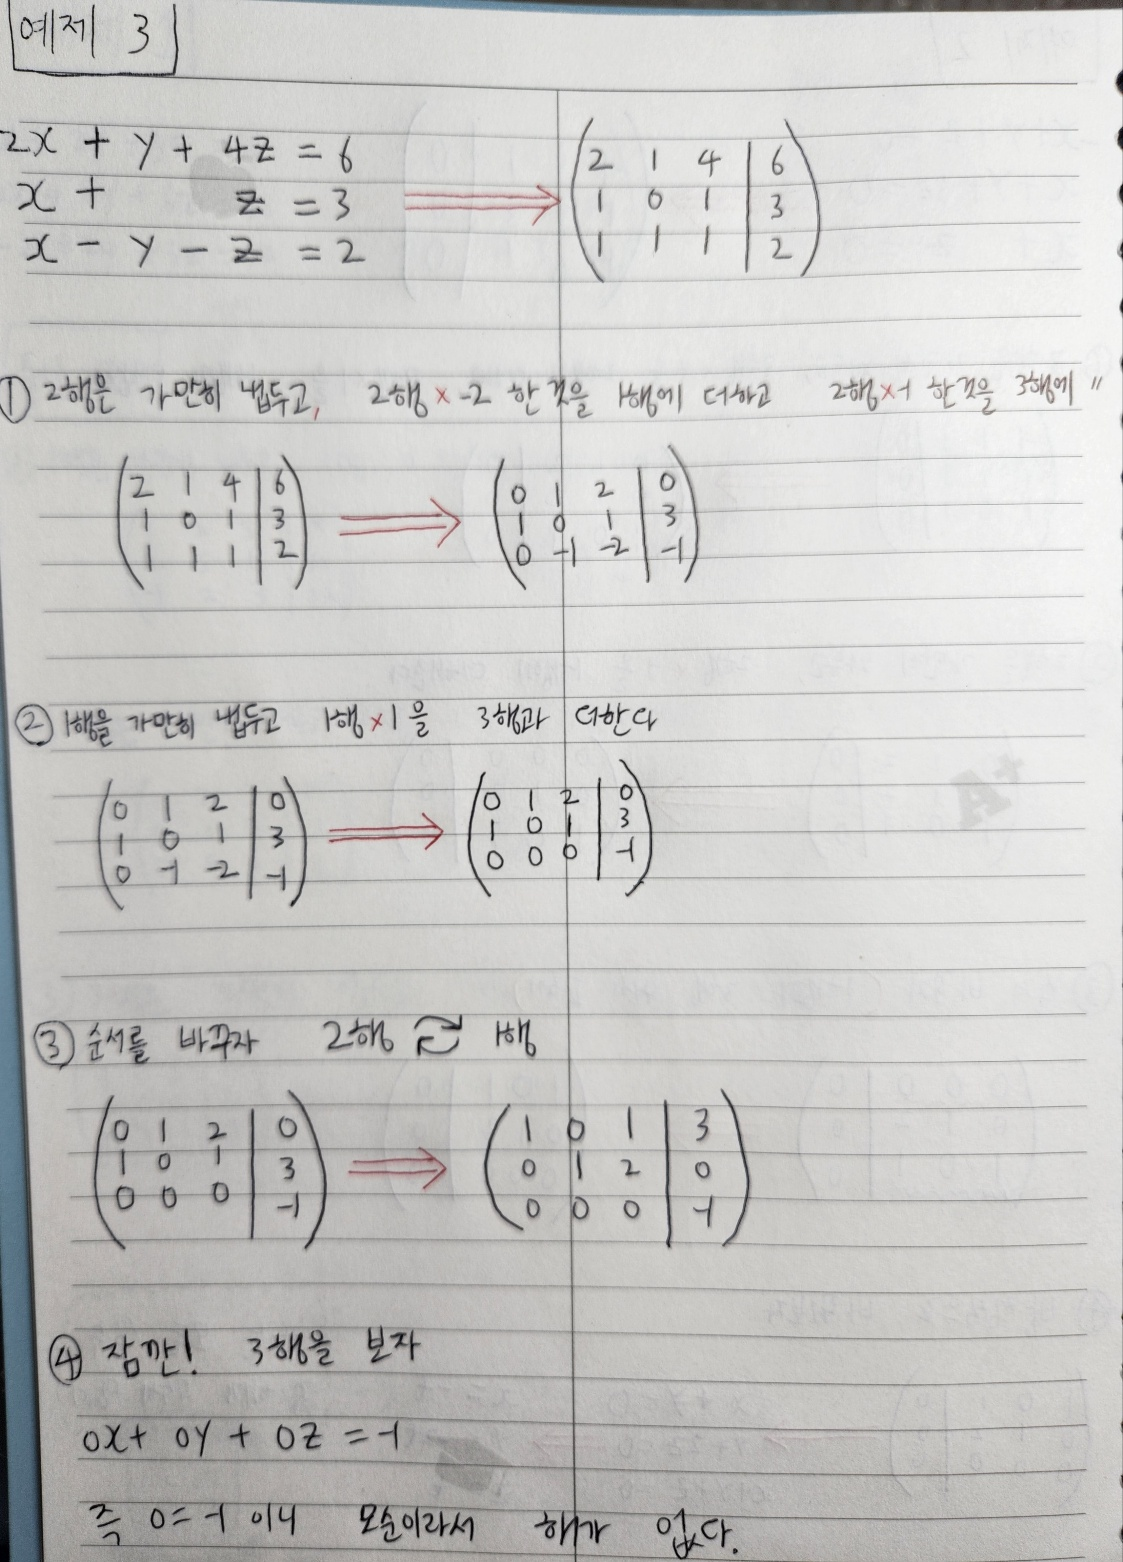 예제 3
2x + y + 4z = 6
x + z = 3
x - y - z = 2
⇒
( 2 1 4 | 6 )
( 1 0 1 | 3 )
( 1 1 1 | 2 )
① 2행은 가만히 냅두고, 2행 × -2 한 것을 1행에 더하고 2행×-1 한것을 3행에 "
( 2 1 4 | 6 ) ⇒ ( 0 1 2 | 0 )
( 1 0 1 | 3 ) ( 1 0 1 | 3 )
( 1 1 1 | 2 ) ( 0 -1 -2 | -1 )
② 1행을 가만히 냅두고 1행×1을 3행과 더한다
( 0 1 2 | 0 ) ⇒ ( 0 1 2 | 0 )
( 1 0 1 | 3 ) ( 1 0 1 | 3 )
( 0 -1 -2 | -1 ) ( 0 0 0 | -1 )
③ 순서를 바꾸자 2행 ⇄ 1행
( 0 1 2 | 0 ) ⇒ ( 1 0 1 | 3 )
( 1 0 1 | 3 ) ( 0 1 2 | 0 )
( 0 0 0 | -1 ) ( 0 0 0 | -1 )
④ 잠깐! 3행을 보자
0x + 0y + 0z = -1
즉 0=-1 이니 모순이라서 해가 없다.